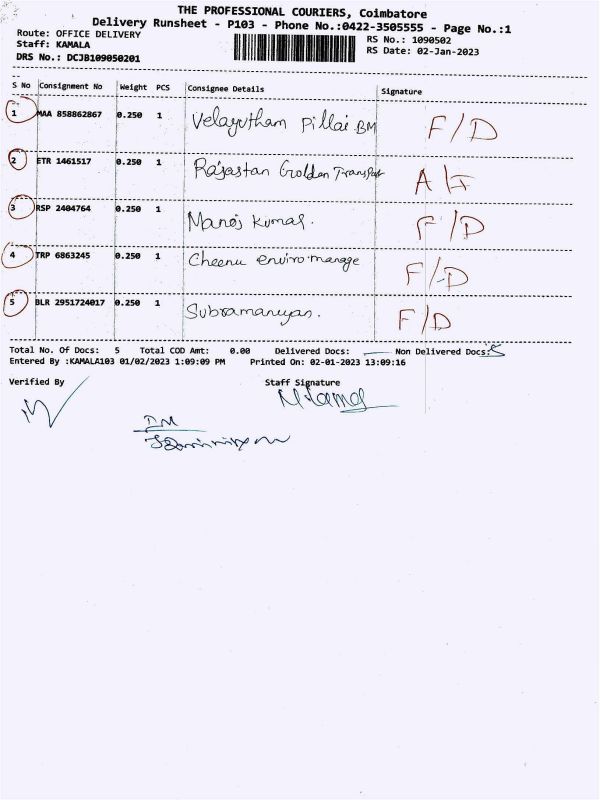 THE PROFESSIONAL COURIERS, Coimbatore
Delivery Runsheet - P103 - Phone No.:0422-3505555 - Page No.:1
Route: OFFICE DELIVERY
RS No.: 1090502
Staff: KAMALA
RS Date: 02-Jan-2023
DRS No.: DCJB109050201
S No Consignment No Weight PCS Consignee Details Signature
1 MAA 858862867 0.250 1 Velayutham Pillai BM F/D
2 ETR 1461517 0.250 1 Rajastan Golden Transport
3 RSP 2404764 0.250 1 Manoj Kumar. F/D
4 TRP 6863245 0.250 1 Cheenu enviro manage F/D
5 BLR 2951724017 0.250 1 Subramaniyan. F/D
Total No. Of Docs: 5 Total COD Amt: 0.00 Delivered Docs: — Non Delivered Docs: 5
Entered By :KAMALA103 01/02/2023 1:09:09 PM Printed On: 02-01-2023 13:09:16
Verified By Staff Signature